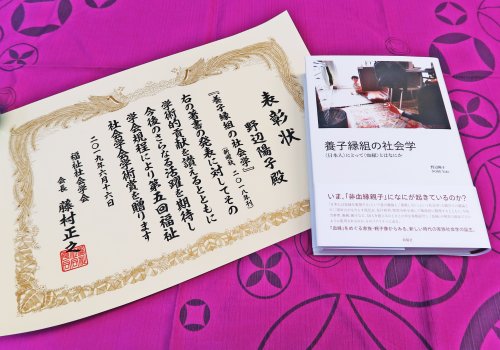 表彰状
野辺陽子殿
『養子縁組の社会学』(新曜社 二〇一八年刊)
右の著書の発表に対してその
学術的貢献を讃えるとともに
今後のさらなる活躍を期待し
学会規程により第五回福祉
社会学会学術賞を贈ります
二〇一九年六月十六日
福祉社会学会
会長 藤村正之
養子縁組の社会学
〈日本人〉にとって〈血縁〉とはなにか
野辺陽子
いま、「非血縁親子」になにが起きているのか?
「血縁」をめぐる家族・親子観からみる、新しい時代の家族社会学の誕生。
新曜社